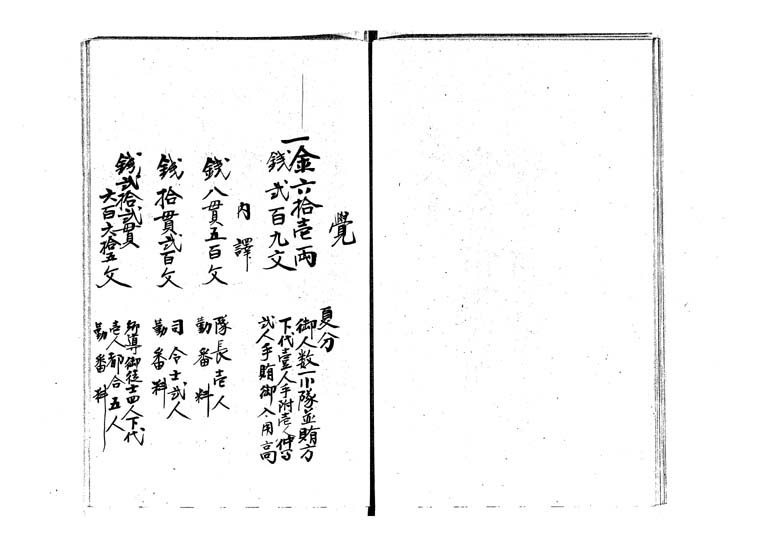 覺
一金六拾壱両
銭弐百九文
夏分
御人数一小隊並賄方
下代壹人手附壱人仲間
弐人手賄御入用高
内譯
銭八貫五百文
隊長壱人
勤番料
銭拾貫弐百文
司令士弐人
勤番料
銭弐拾弐貫
六百六拾五文
御徒士四人下代
壱人都合五人
勤番料